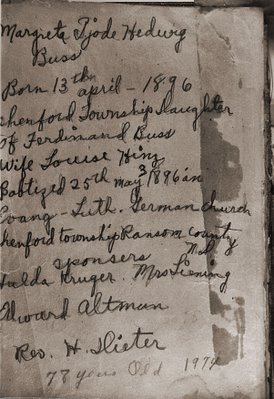 Margreta Tjode Hedwig
Buss
Born 13th april - 1896
Shenford Township Daughter
of Ferdinand Buss
Wife Louise Hinz
Baptized 25th may 3 1896 in
Evang - Luth. German church
Shenford township Ransom county
N.D.
sponsers
Hulda Kruger. Mrs Siening
Edward Altman
Rev. H. Dieter
78 years Old 1974